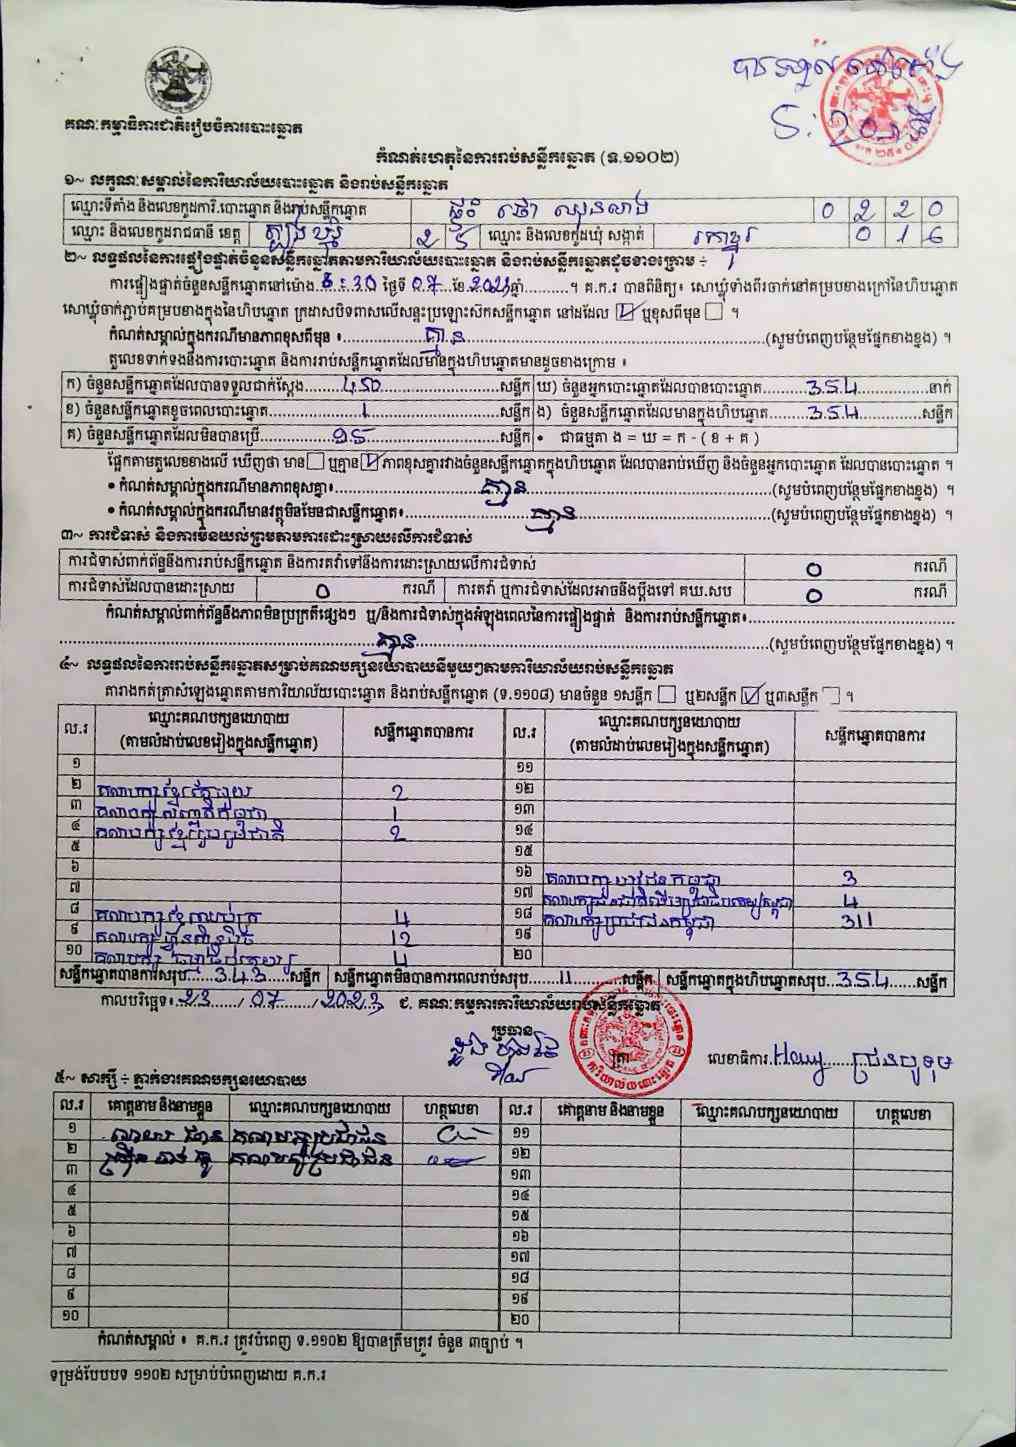 គណៈកម្មាធិការជាតិរៀបចំការបោះឆ្នោត
កំណត់ហេតុនៃការរាប់សន្លឹកឆ្នោត (ទ.១១០២)
១~ លក្ខណៈសម្គាល់នៃការិយាល័យបោះឆ្នោត និងរាប់សន្លឹកឆ្នោត
ឈ្មោះទីតាំង និងលេខកូដការិ.បោះឆ្នោត និងរាប់សន្លឹកឆ្នោត 0 2 2 0
ឈ្មោះ និងលេខកូដរាជធានី ខេត្ត ត្បូងឃ្មុំ 2 5 ឈ្មោះ និងលេខកូដឃុំ សង្កាត់ 0 1 6
២~ លទ្ធផលនៃការផ្ទៀងផ្ទាត់ចំនួនសន្លឹកឆ្នោតតាមការិយាល័យបោះឆ្នោត និងរាប់សន្លឹកឆ្នោតដូចខាងក្រោម ÷
ការផ្ទៀងផ្ទាត់ចំនួនសន្លឹកឆ្នោតនៅម៉ោង :30 ថ្ងៃទី ខែ 07 ឆ្នាំ 2023 ។ គ.ក.រ បានពិនិត្យ៖ សោឃ្លុំទាំងពីរចាក់នៅគម្របខាងក្រៅនៃហិបឆ្នោត
សោឃ្លុំចាក់ភ្ជាប់គម្របខាងក្នុងនៃហិបឆ្នោត ក្រដាសបិទពាសលើសន្ទះប្រឡោះស៊កសន្លឹកឆ្នោត នៅដដែល ☑ ឬខុសពីមុន ☐ ។
កំណត់សម្គាល់ក្នុងករណីមានភាពខុសពីមុន ៖ គ្មាន (សូមបំពេញបន្ថែមផ្នែកខាងខ្នង) ។
តួលេខទាក់ទងនឹងការបោះឆ្នោត និងការរាប់សន្លឹកឆ្នោតដែលមានក្នុងហិបឆ្នោតមានដូចខាងក្រោម ៖
ក) ចំនួនសន្លឹកឆ្នោតដែលបានទទួលជាក់ស្តែង 450 សន្លឹក ឃ) ចំនួនអ្នកបោះឆ្នោតដែលបានបោះឆ្នោត 354 នាក់
ខ) ចំនួនសន្លឹកឆ្នោតខូចពេលបោះឆ្នោត 1 សន្លឹក ង) ចំនួនសន្លឹកឆ្នោតដែលមានក្នុងហិបឆ្នោត 354 សន្លឹក
គ) ចំនួនសន្លឹកឆ្នោតដែលមិនបានប្រើ 95 សន្លឹក • ជាធម្មតា ង = ឃ = ក - ( ខ + គ )
ផ្អែកតាមតួលេខខាងលើ ឃើញថា មាន ☐ ឬគ្មាន ☑ ភាពខុសគ្នារវាងចំនួនសន្លឹកឆ្នោតក្នុងហិបឆ្នោត ដែលបានរាប់ឃើញ និងចំនួនអ្នកបោះឆ្នោត ដែលបានបោះឆ្នោត ។
• កំណត់សម្គាល់ក្នុងករណីមានភាពខុសគ្នា៖ គ្មាន (សូមបំពេញបន្ថែមផ្នែកខាងខ្នង) ។
• កំណត់សម្គាល់ក្នុងករណីមានវត្ថុមិនមែនជាសន្លឹកឆ្នោត៖ គ្មាន (សូមបំពេញបន្ថែមផ្នែកខាងខ្នង) ។
៣~ ការជំទាស់ និងការមិនយល់ព្រមតាមការដោះស្រាយលើការជំទាស់
ការជំទាស់ពាក់ព័ន្ធនឹងការរាប់សន្លឹកឆ្នោត និងការតវ៉ាទៅនឹងការដោះស្រាយលើការជំទាស់ 0 ករណី
ការជំទាស់ដែលបានដោះស្រាយ 0 ករណី ការតវ៉ា ឬការជំទាស់ដែលអាចនឹងប្តឹងទៅ គឃ.សប 0 ករណី
កំណត់សម្គាល់ពាក់ព័ន្ធនឹងភាពមិនប្រក្រតីផ្សេងៗ ឬ/និងការជំទាស់ក្នុងអំឡុងពេលនៃការផ្ទៀងផ្ទាត់ និងការរាប់សន្លឹកឆ្នោត៖
គ្មាន (សូមបំពេញបន្ថែមផ្នែកខាងខ្នង) ។
៤~ លទ្ធផលនៃការរាប់សន្លឹកឆ្នោតសម្រាប់គណបក្សនយោបាយនីមួយៗតាមការិយាល័យរាប់សន្លឹកឆ្នោត
តារាងកត់ត្រាសំឡេងឆ្នោតតាមការិយាល័យបោះឆ្នោត និងរាប់សន្លឹកឆ្នោត (ទ.១១០៨) មានចំនួន ១សន្លឹក ☐ ឬ២សន្លឹក ☑ ឬ៣សន្លឹក ☐ ។
ល.រ ឈ្មោះគណបក្សនយោបាយ (តាមលំដាប់លេខរៀងក្នុងសន្លឹកឆ្នោត) សន្លឹកឆ្នោតបានការ ល.រ ឈ្មោះគណបក្សនយោបាយ (តាមលំដាប់លេខរៀងក្នុងសន្លឹកឆ្នោត) សន្លឹកឆ្នោតបានការ
១ ១១
២ 2 ១២
៣ 1 ១៣
៤ គណបក្សខ្មែររួបរួមជាតិ 2 ១៤
៥ ១៥
៦ ១៦ គណបក្សយុវជនកម្ពុជា 3
៧ ១៧ 4
៨ 4 ១៨ គណបក្សប្រជាជនកម្ពុជា 311
៩ គណបក្សហ្វ៊ុនស៊ិនប៉ិច 12 ១៩
១០ 4 ២០
សន្លឹកឆ្នោតបានការសរុប 343 សន្លឹក សន្លឹកឆ្នោតមិនបានការពេលរាប់សរុប 11 សន្លឹក សន្លឹកឆ្នោតក្នុងហិបឆ្នោតសរុប 354 សន្លឹក
កាលបរិច្ឆេទ៖ 23 / 07 / 2023 ជ. គណៈកម្មការការិយាល័យរាប់សន្លឹកឆ្នោត
ប្រធាន
ត្រា
លេខាធិការ
៥~ សាក្សី ÷ ភ្នាក់ងារគណបក្សនយោបាយ
ល.រ គោត្តនាម និងនាមខ្លួន ឈ្មោះគណបក្សនយោបាយ ហត្ថលេខា ល.រ គោត្តនាម និងនាមខ្លួន ឈ្មោះគណបក្សនយោបាយ ហត្ថលេខា
១ គណបក្សប្រជាជន ១១
២ គណបក្សប្រជាជន ១២
៣ ១៣
៤ ១៤
៥ ១៥
៦ ១៦
៧ ១៧
៨ ១៨
៩ ១៩
១០ ២០
កំណត់សម្គាល់ ៖ គ.ក.រ ត្រូវបំពេញ ទ.១១០២ ឱ្យបានត្រឹមត្រូវ ចំនួន ៣ច្បាប់ ។
ទម្រង់បែបបទ ១១០២ សម្រាប់បំពេញដោយ គ.ក.រ